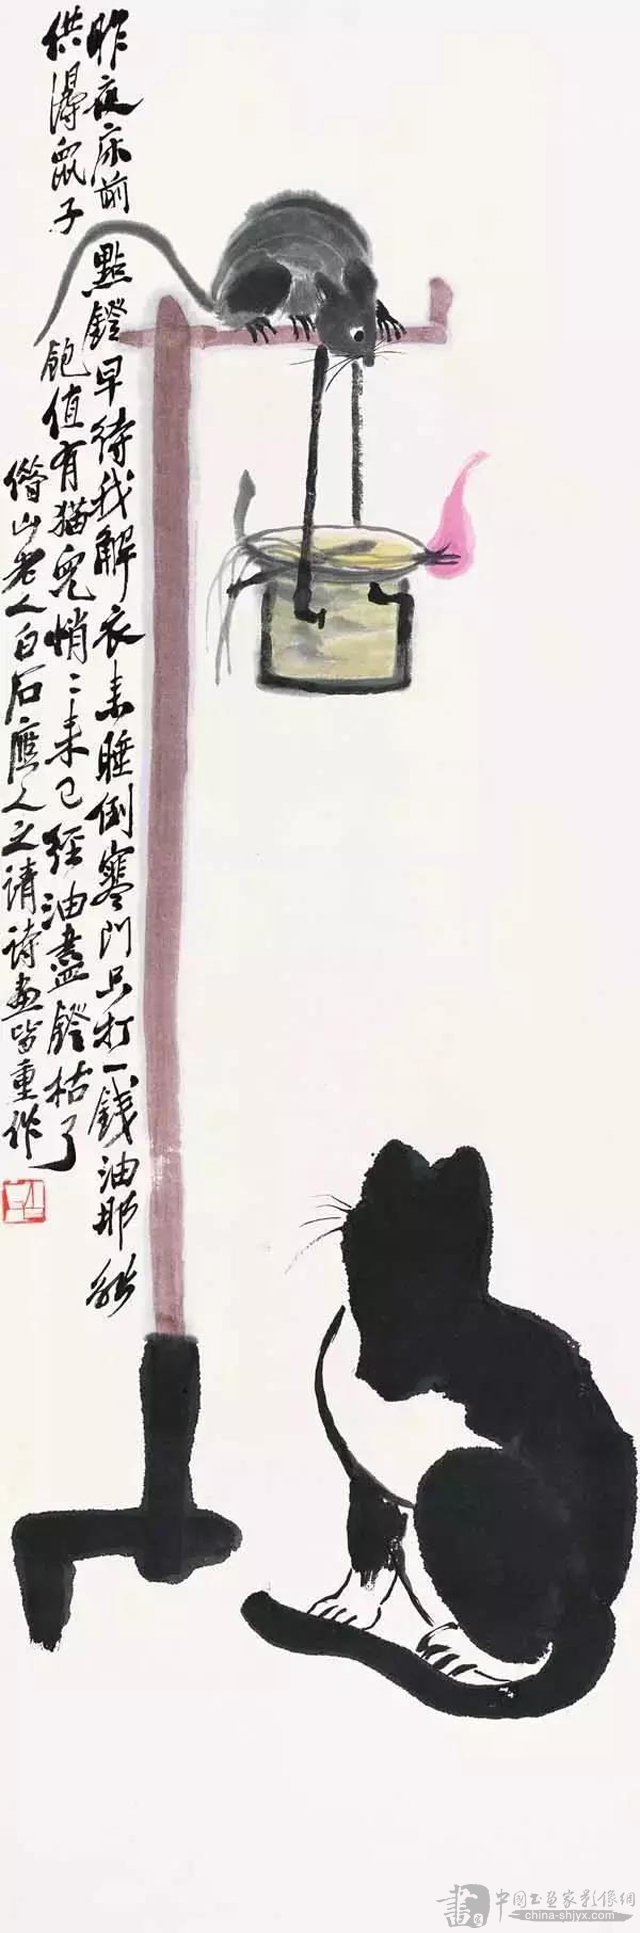 昨夜床前點鐙早待我解衣來睡倒寒門只打一錢油那能
供得鼠子飽值有猫兒悄〻來已經油盡鐙枯了
借山老人白石應人之請詩畫皆重作
中國书画家影像網
china-shjyx.com